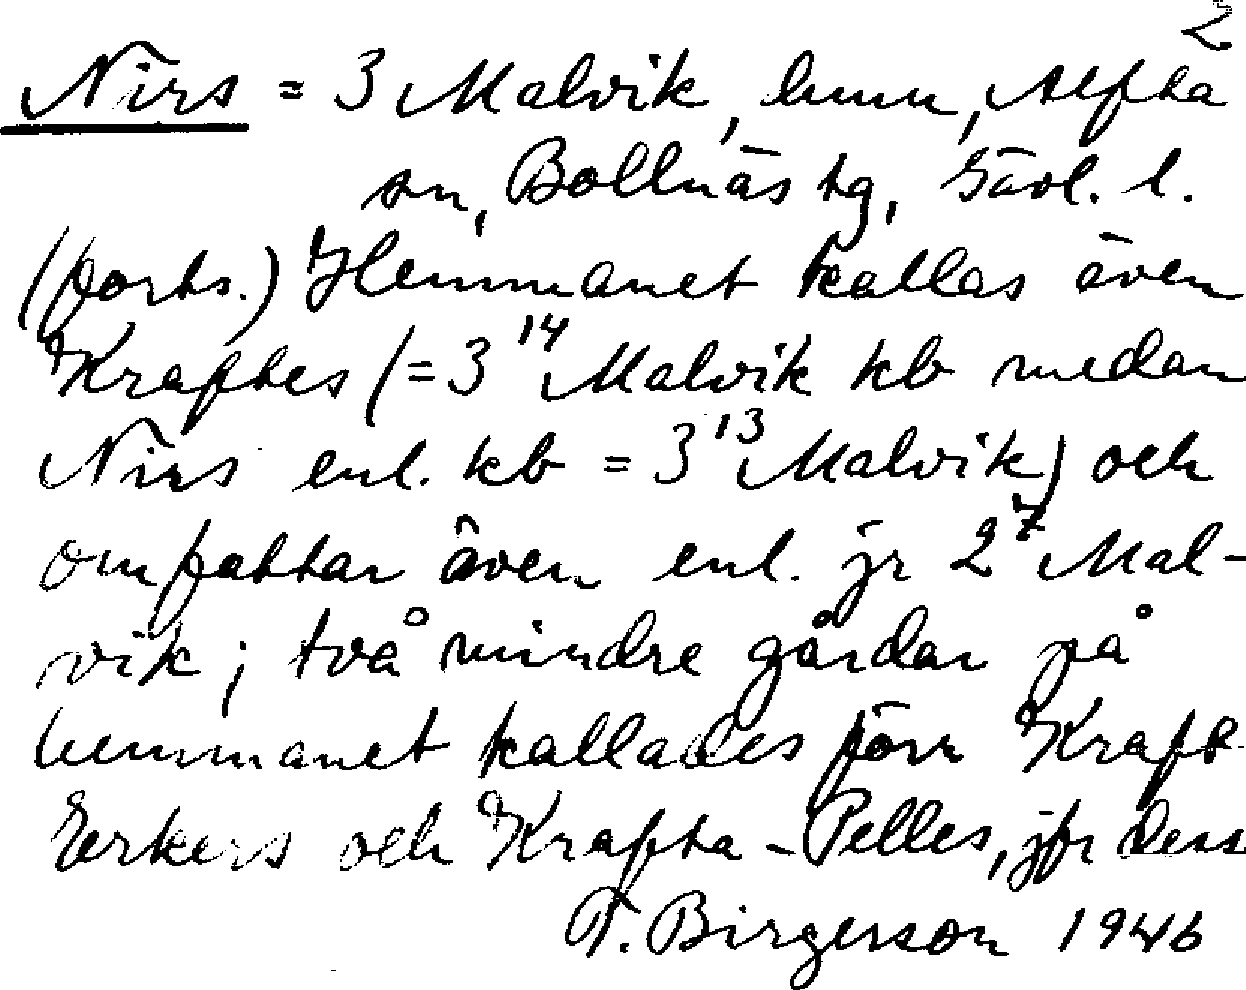 2
Nirs = 3 Malvik, hmn, Alfta
sn, Bollnäs tg, Gävl. l.
(forts.) Hemmanet kallas även
Kraftes (= 3¹⁴ Malvik kb medan
Nirs enl. kb = 3¹³ Malvik) och
omfattar även enl. jr 2⁷ Mal-
vik; två mindre gårdar på
hemmanet kallades förr Kraft
Erkers och Krafta-Pelles, jfr dess
T. Birgerson 1946